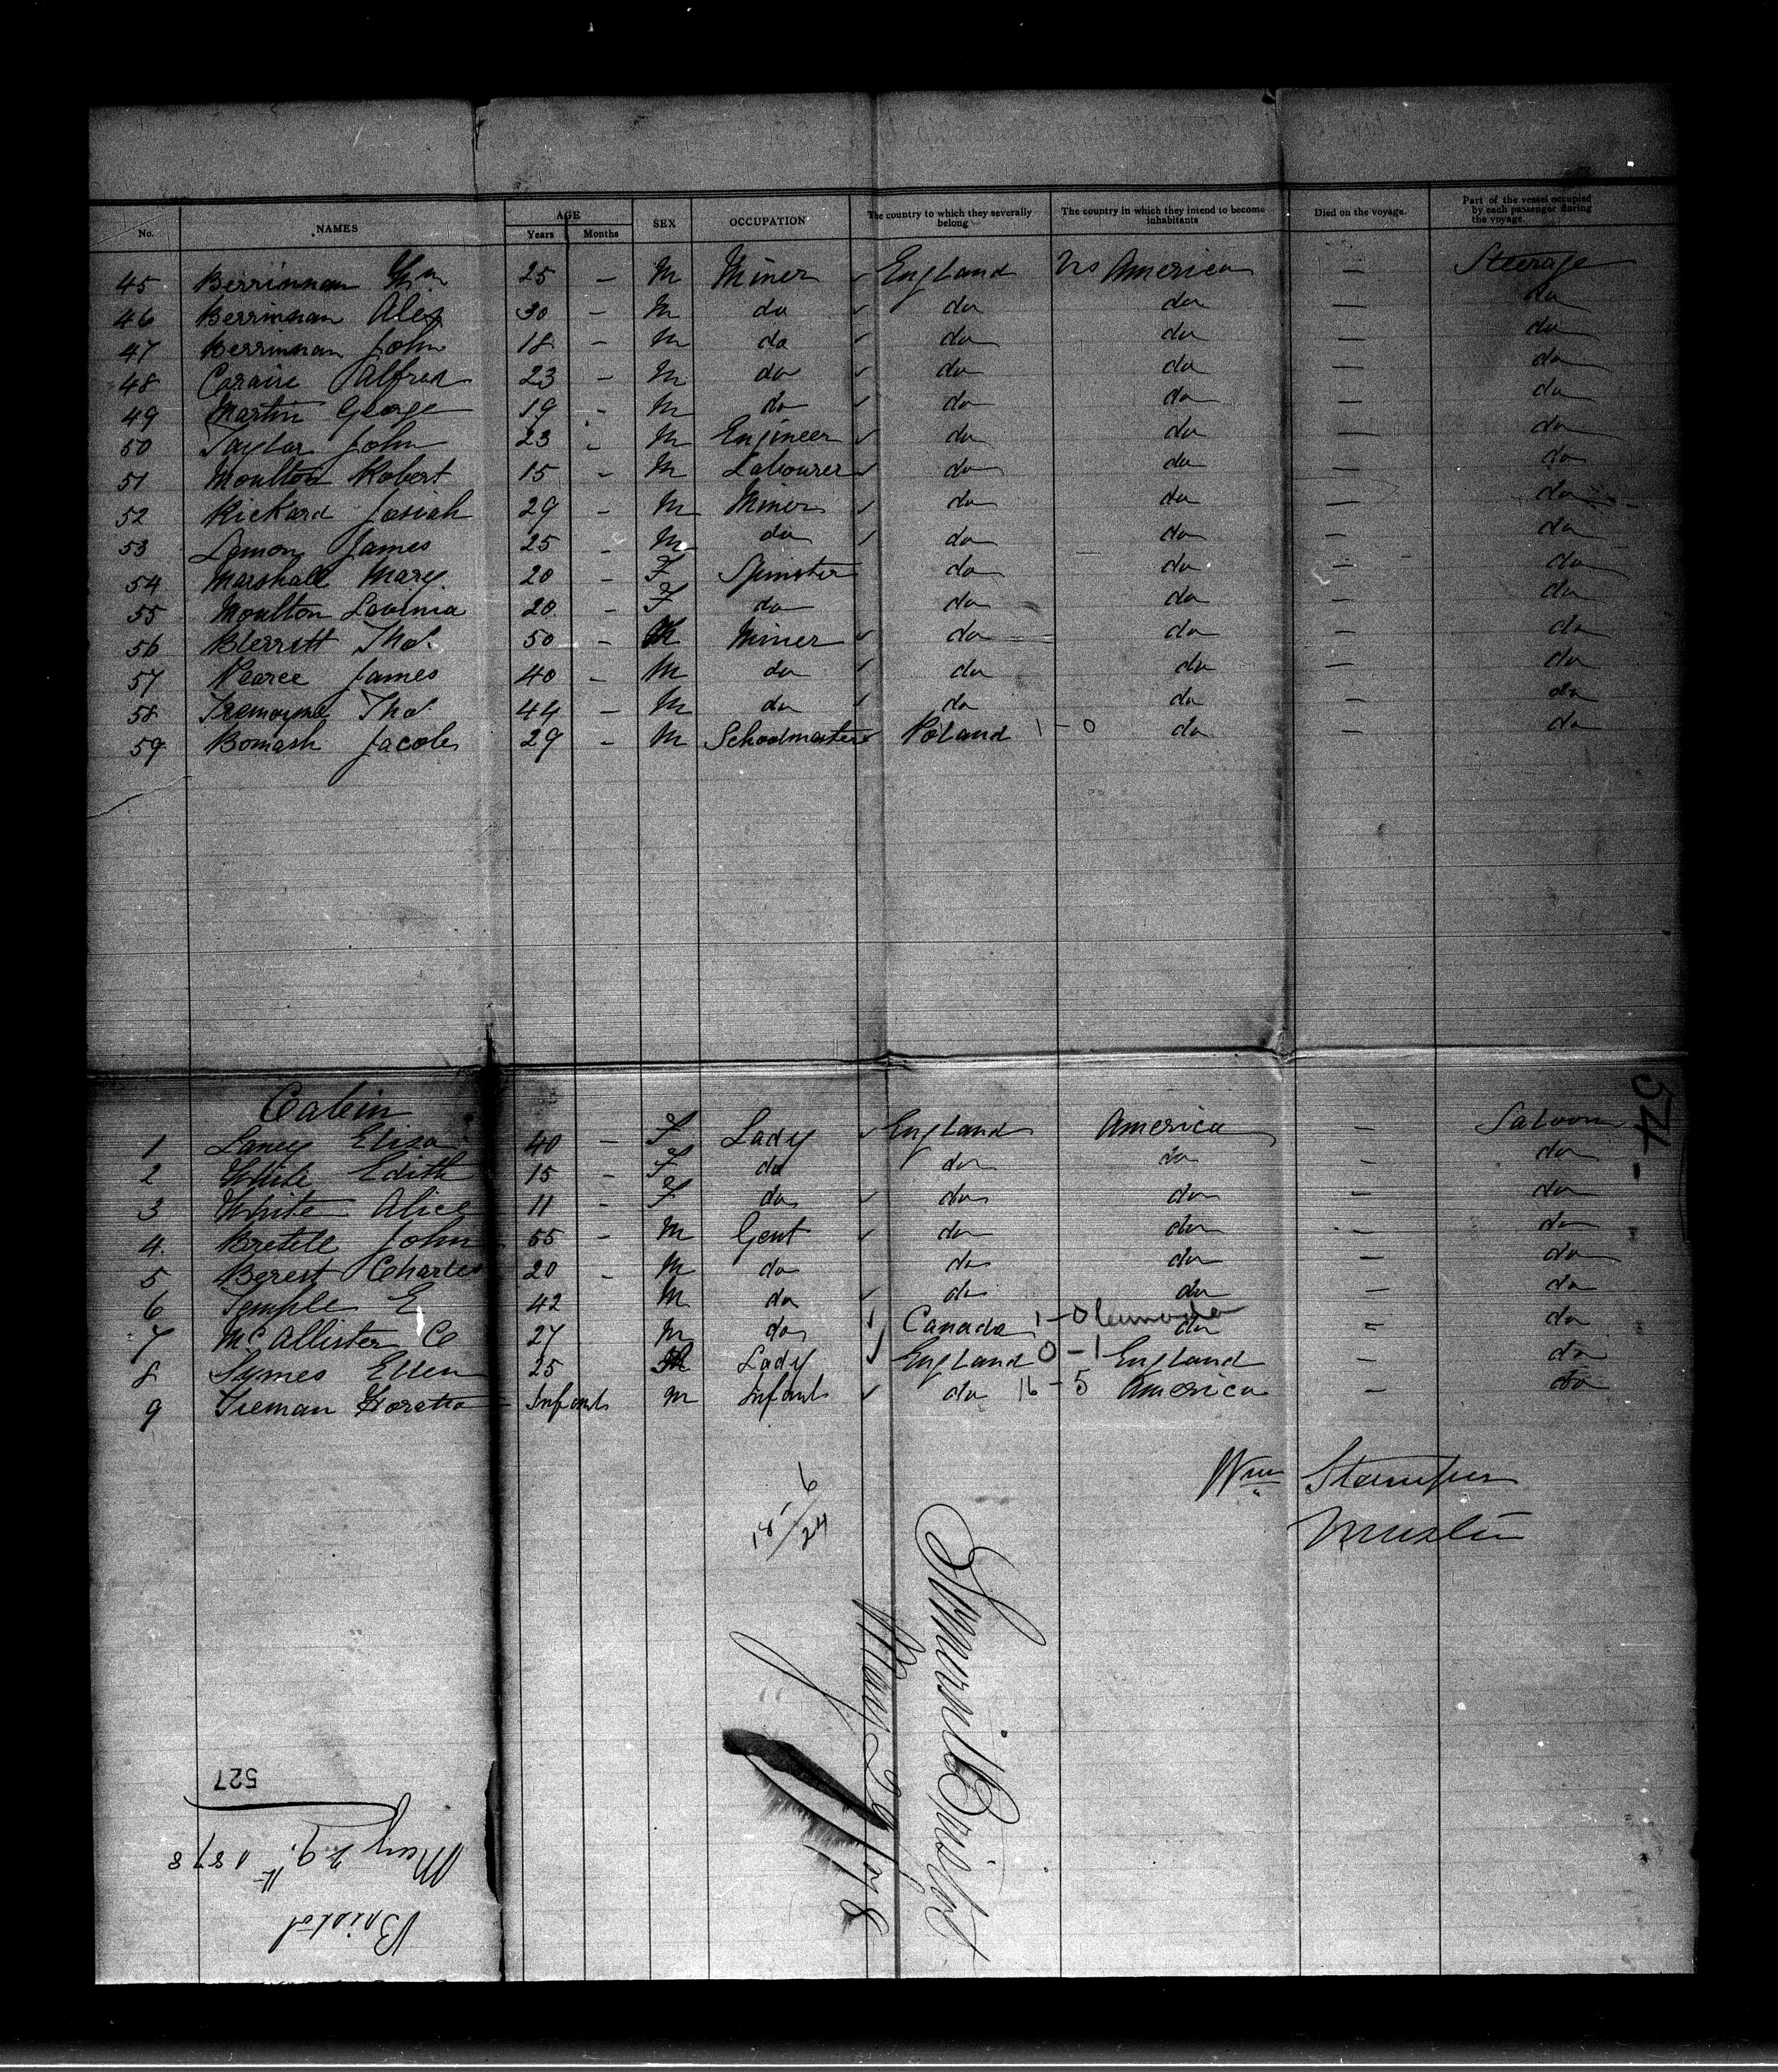 No. NAMES AGE Years Months SEX OCCUPATION The country to which they severally belong The country in which they intend to become inhabitants Died on the voyage. Part of the vessel occupied by each passenger during the voyage.
45 Berrinnan Wm 25 – M Miner ✓ England US America — Steerage
46 Berrinnan Alex 30 – M do ✓ do do — do
47 Berrinnan John 18 – M do ✓ do do — do
48 Coraire Alfred 23 – M do ✓ do do — do
49 Martin George 19 – M do ✓ do do — do
50 Taylor John 23 – M Engineer ✓ do do — do
51 Moulton Robert 15 – M Labourer ✓ do do — do
52 Rickard Josiah 29 – M Miner ✓ do do — do
53 Lemon James 25 – M do ✓ do do — do
54 Marshall Mary. 20 – F Spinster do do – do
55 Moulton Lavinia 20 – F do do do – do
56 Blerrett Thos. 50 – M Miner ✓ do do — do
57 Pearce James 40 – M do ✓ do do — do
58 Tremayne Thos. 44 – M do ✓ do do – do
59 Bomash Jacob 29 – M Schoolmaster ✓ Poland 1 – 0 do — do
Cabin
1 Laney Eliza 40 – F Lady ✓ England America – Saloon
2 White Edith 15 – F do do do – do
3 White Alice 11 – F do ✓ do do – do
4. Bretell John 55 – M Gent ✓ do do – do
5 Berest Charles 20 – M do do do – do
6 Temple E 42 M do ✓ do do – do
7 McAllister C 27 M do ✓ Canada 1 – 0 Canada do – do
8 Symes Ellen 25 Lady ✓ England 0 – 1 England – do
9 Tieman Horatio Infant M Infant ✓ do 16 – 5 America – do
54 –
Wm Stamper
Master
18 – 6
24
Bristol
May 29/78
Bristol
May 29th 1878
527